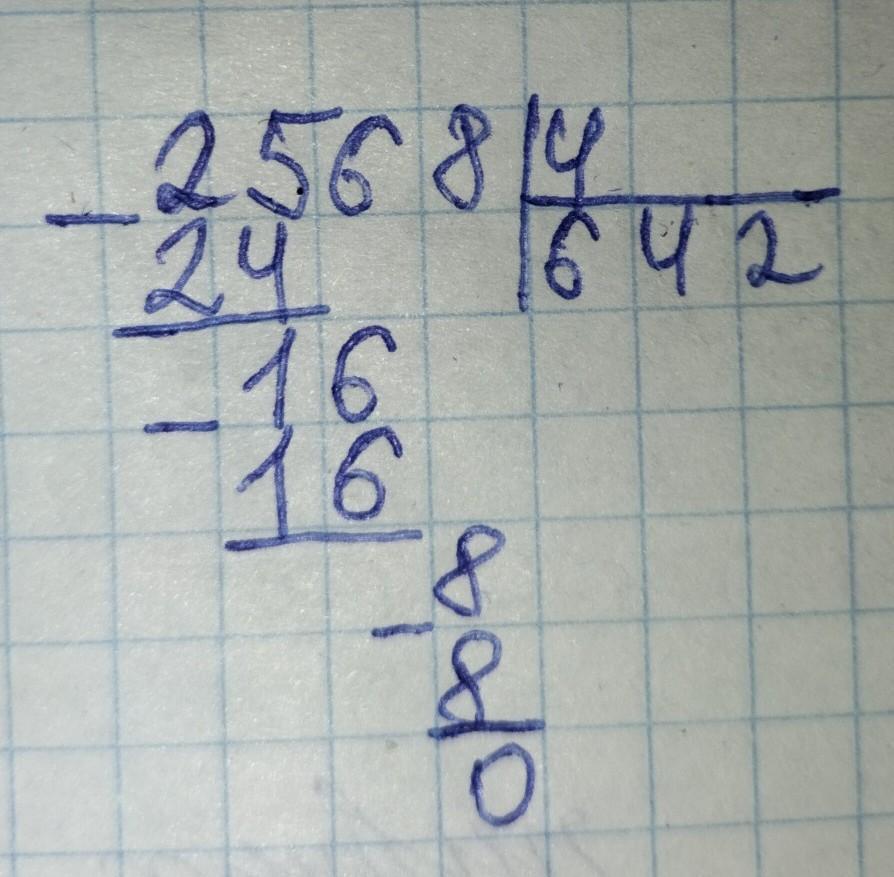 2568 4
- 24 642
16
- 16
8
- 8
0